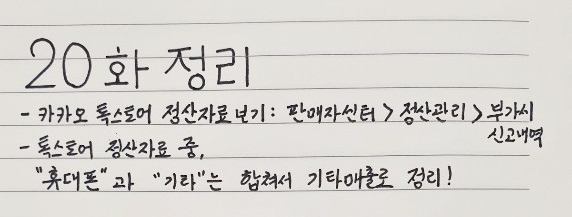 20화 정리
- 카카오 톡스토어 정산자료보기: 판매자센터 > 정산관리 > 부가세
신고내역
- 톡스토어 정산자료 중,
"휴대폰"과 "기타"는 합쳐서 기타매출로 정리!